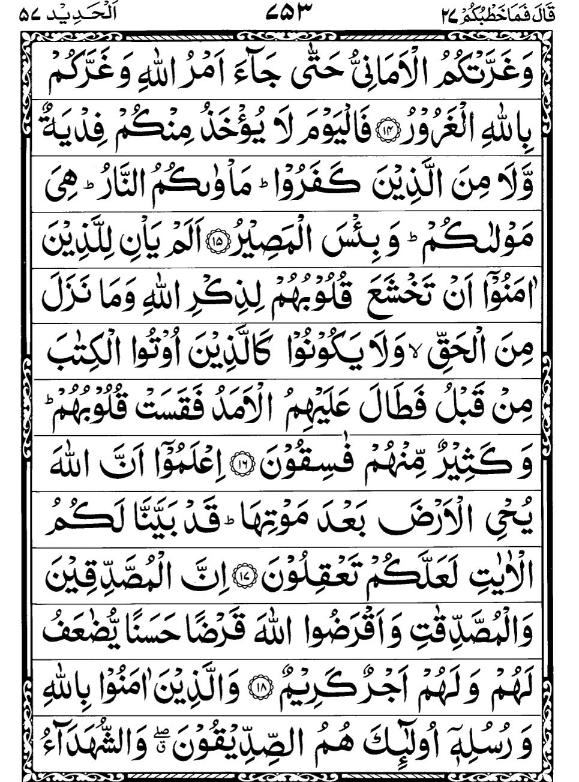 قَالَ فَمَاخَطْبُكُمْ ٢٧ ٧٥٣ اَلْحَدِيْد ٥٧
وَغَرَّتْكُمُ الْاَمَانِیُّ حَتّٰی جَآءَ اَمْرُ اللّٰهِ وَغَرَّكُمْ
بِاللّٰهِ الْغَرُوْرُ ۝١٤ فَالْیَوْمَ لَا یُؤْخَذُ مِنْكُمْ فِدْیَةٌ
وَّلَا مِنَ الَّذِیْنَ كَفَرُوْا ؕ مَاْوٰىكُمُ النَّارُ ؕ هِیَ
مَوْلٰىكُمْ ؕ وَبِئْسَ الْمَصِیْرُ ۝١٥ اَلَمْ یَاْنِ لِلَّذِیْنَ
اٰمَنُوْۤا اَنْ تَخْشَعَ قُلُوْبُهُمْ لِذِكْرِ اللّٰهِ وَمَا نَزَلَ
مِنَ الْحَقِّ ۙ وَلَا یَكُوْنُوْا كَالَّذِیْنَ اُوْتُوا الْكِتٰبَ
مِنْ قَبْلُ فَطَالَ عَلَیْهِمُ الْاَمَدُ فَقَسَتْ قُلُوْبُهُمْ ؕ
وَكَثِیْرٌ مِّنْهُمْ فٰسِقُوْنَ ۝١٦ اِعْلَمُوْۤا اَنَّ اللّٰهَ
یُحْیِ الْاَرْضَ بَعْدَ مَوْتِهَا ؕ قَدْ بَیَّنَّا لَكُمُ
الْاٰیٰتِ لَعَلَّكُمْ تَعْقِلُوْنَ ۝١٧ اِنَّ الْمُصَّدِّقِیْنَ
وَالْمُصَّدِّقٰتِ وَاَقْرَضُوا اللّٰهَ قَرْضًا حَسَنًا یُّضٰعَفُ
لَهُمْ وَلَهُمْ اَجْرٌ كَرِیْمٌ ۝١٨ وَالَّذِیْنَ اٰمَنُوْا بِاللّٰهِ
وَرُسُلِهٖۤ اُولٰٓئِكَ هُمُ الصِّدِّیْقُوْنَ ۖۗ وَالشُّهَدَآءُ